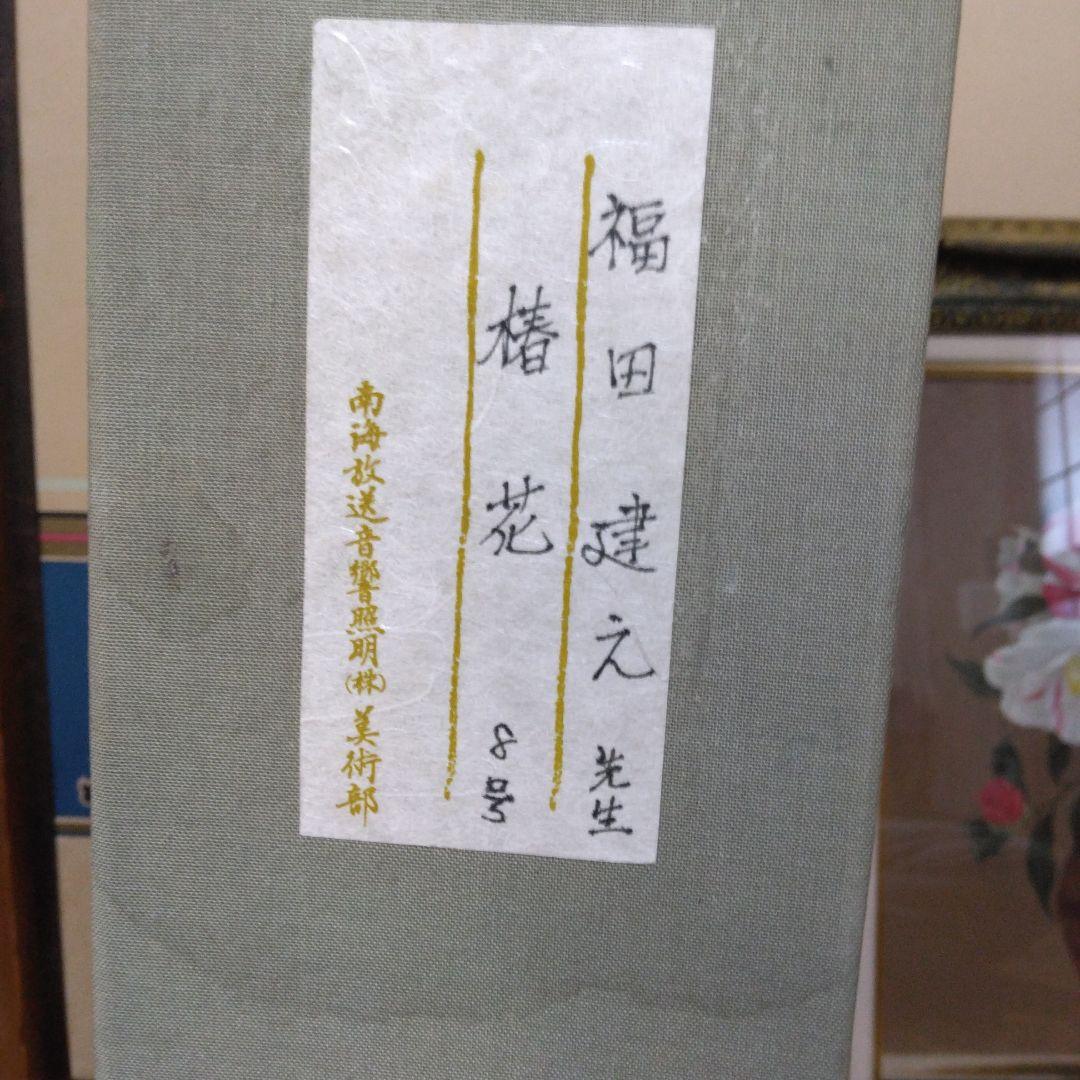 福田建之先生
椿花 8号
南海放送音響照明(株)美術部